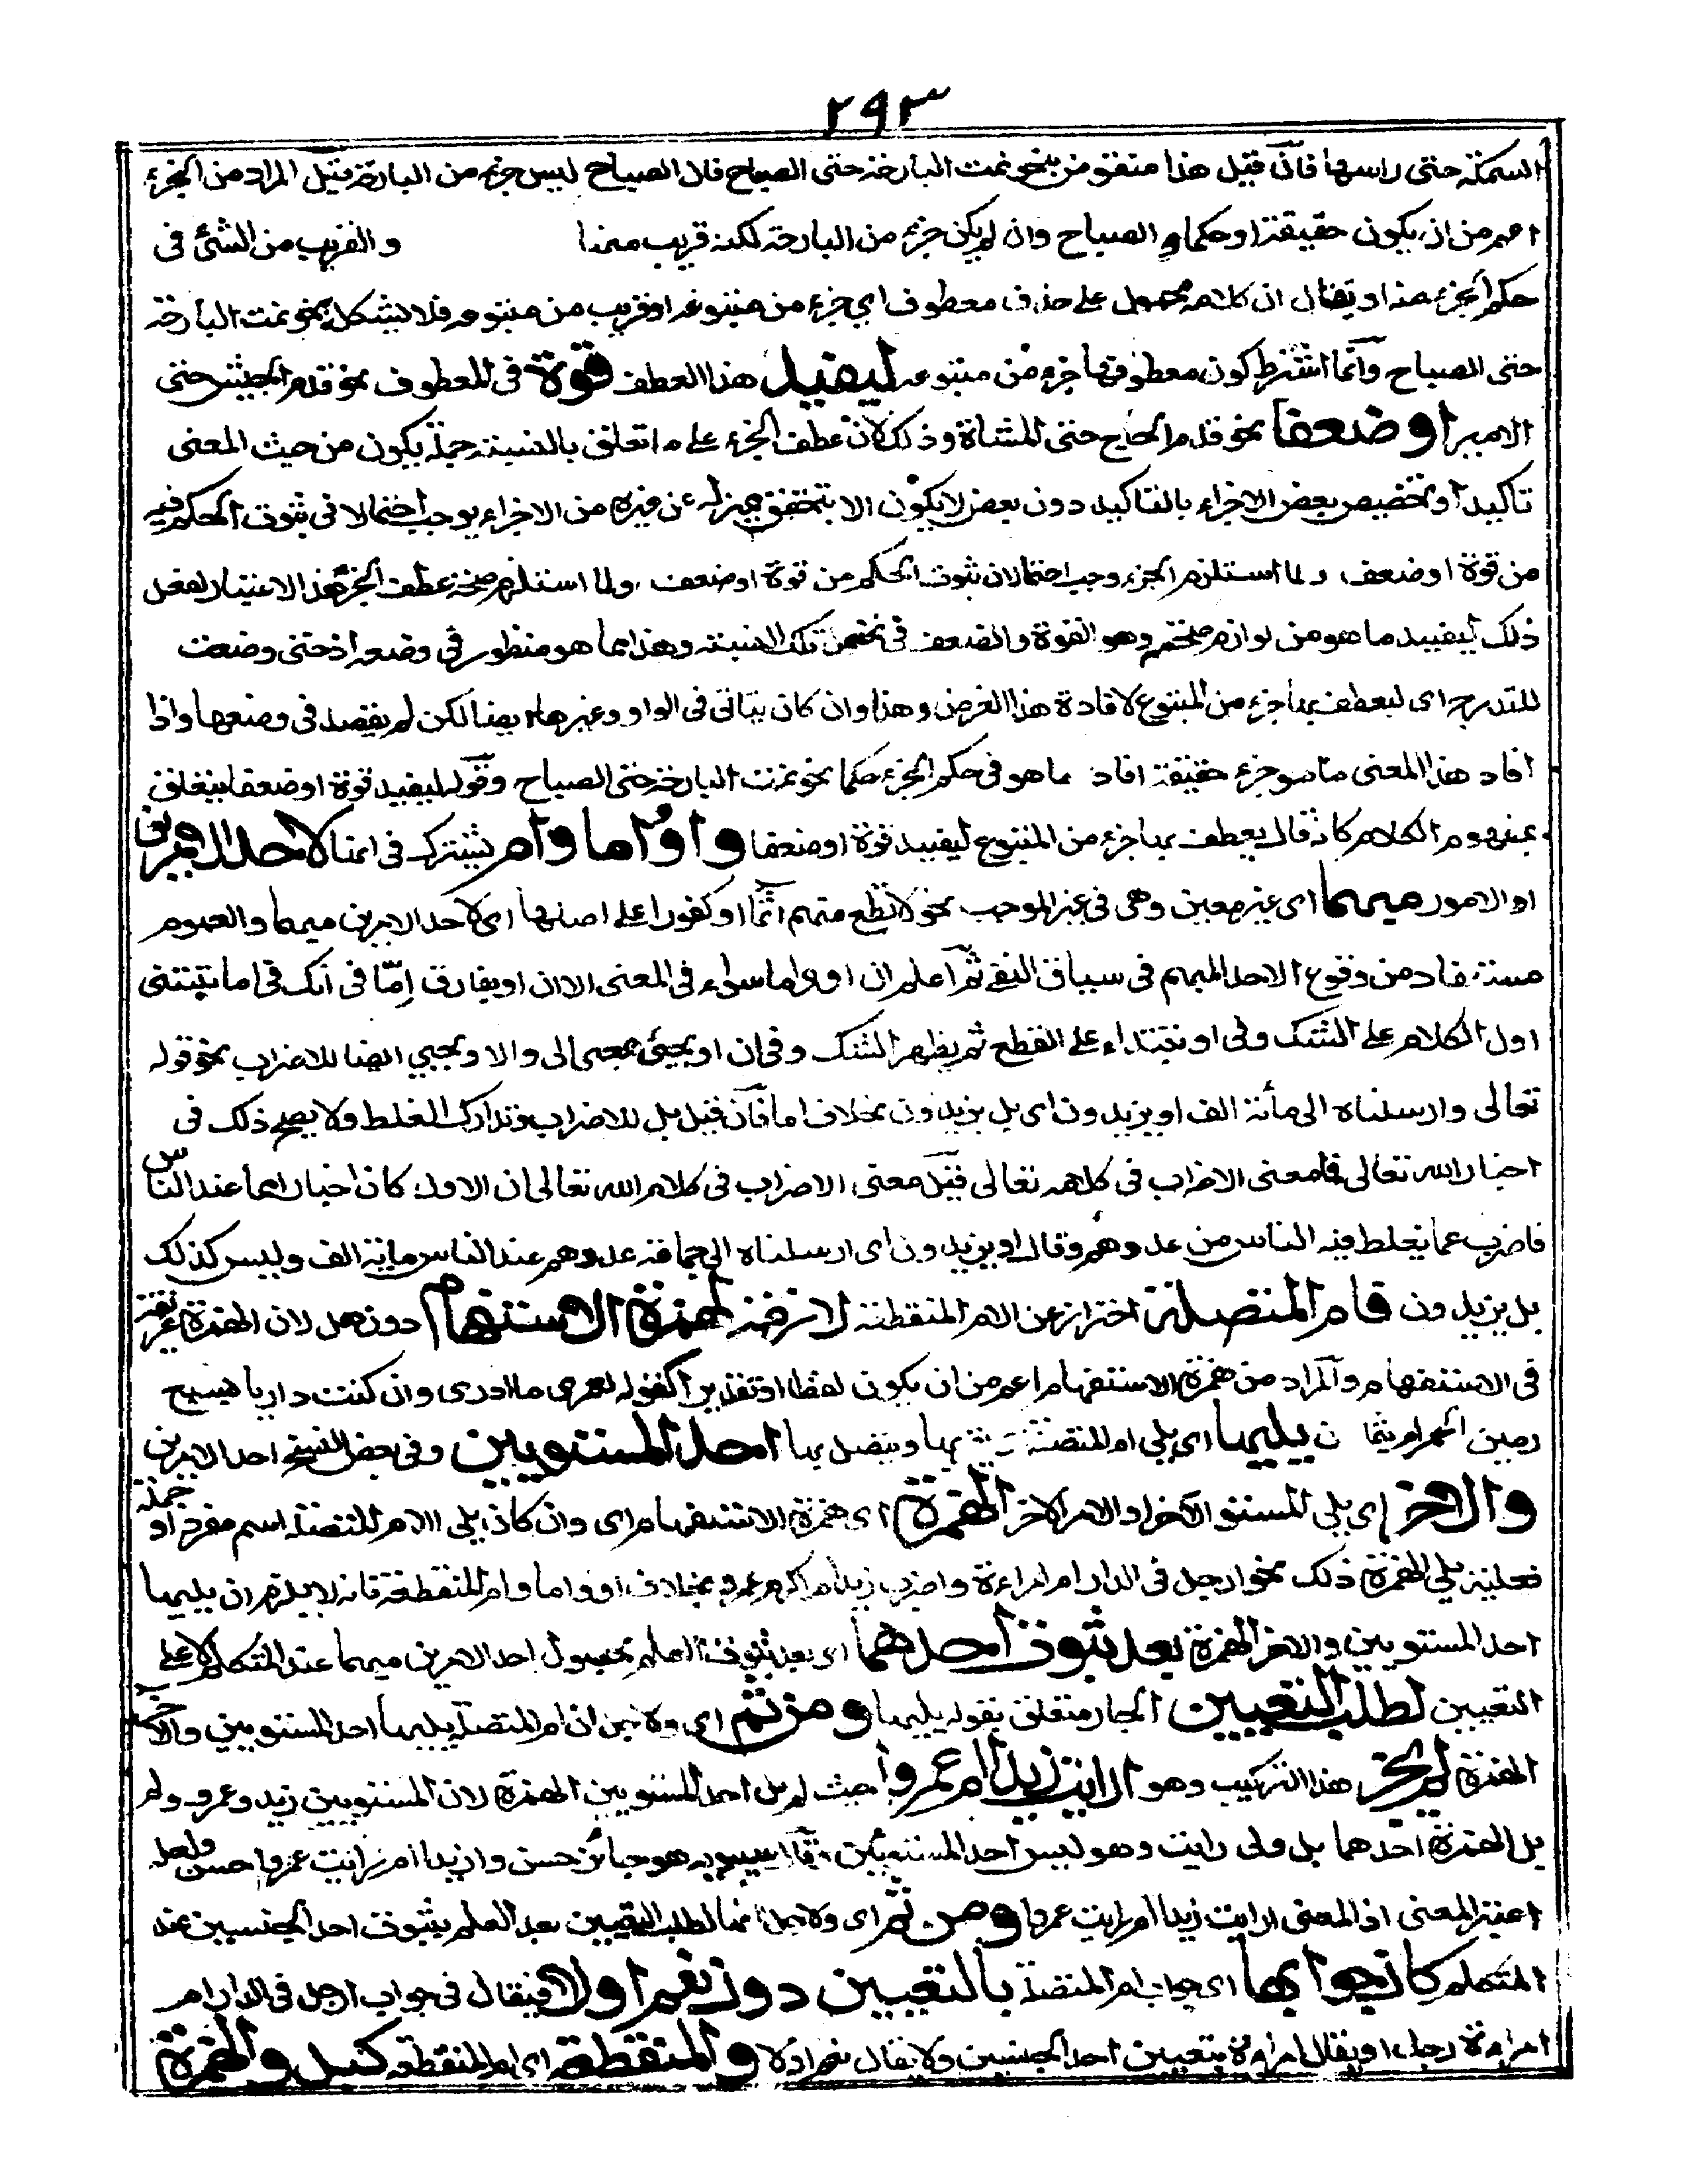 ۲۹۳
السمكة حتى راسها فان قيل هذا منقوض بنحو نمت البارحة حتى الصباح فان الصباح ليس جزء من البارحة قيل المراد من الجزء
اعم من ان يكون حقيقة او حكما و الصباح وان لم يكن جزء من البارحة لكنه قريب منها والقريب من الشئ فى
حكم الجزء منه او يقال ان كلامه محمول على حذف معطوف اي جزء من متبوعه او قريب من متبوعه فلا يشكل بنحو نمت البارحة
حتى الصباح وانما اشترط كون معطوفها جزء من متبوعه ليفيد هذا العطف قوة فى المعطوف نحو قدم الجيش حتى
الامير او ضعفا نحو قدم الحاج حتى المشاة وذلك لان عطف الجزء على ما تعلق بالنسبة جملة يكون من حيث المعنى
تاكيدا وتخصيص بعض الاجزاء بالتاكيد دون بعض لا يكون الا بتحقق ميزله عن غيره من الاجزاء يوجب احتمالا فى ثبوت الحكم فيه
من قوة او ضعف ولما استلزم الجزء وجب احتمالان ثبوت الحكم من قوة او ضعف ولما استلزم صحة عطف الجزء هذا الاعتبار لفعل
ذلك ليفيد ما هو من لوازم صحته وهو القوة والضعف فى تحمل تلك النسبة وهذا مما هو منظور فى وضعه اذ حتى وضعت
للتدرج اى ليعطف بها جزء من المتبوع لافادة هذا الغرض وهذا وان كان يتاتى فى الواو وغيرها ايضا لكن لم يقصد فى وضعها واذا
افاد هذا المعنى ما هو جزء حقيقة افاد ما هو فى حكم الجزء حكما نحو نمت البارحة حتى الصباح وقوله ليفيد قوة او ضعفا يتعلق
بمفهوم الكلام كانه قال يعطف بها جزء من المتبوع ليفيد قوة او ضعفا واو واما وام تشترك فى انها لاحد الامرين
او الامور مبهما اى غير معين وهى فى غير الموجب نحو لا تطع منهم اثما او كفورا على اصلها اى لاحد الامرين مبهما والعموم
مستفاد من وقوع الاحد المبهم فى سياق النفى ثم اعلم ان او واما سواء فى المعنى الا ان او يفارق اِمّا فى انك فى اما تبتنى
اول الكلام على الشك وفى او تبتداء على القطع ثم يظهر الشك وفى ان او يجيئ بمعنى الى والا ويجيى ايضا للاضراب نحو قوله
تعالى وارسلناه الى مائة الف او يزيدون اى بل يزيدون بخلاف اما فان قيل بل للاضراب وتدارك الغلط ولا يصح ذلك فى
اخبار الله تعالى فما معنى الاضراب فى كلامه تعالى قيل معنى الاضراب فى كلام الله تعالى ان الاول كان اخبارا بما عند الناس
فاضرب عما يغلط فيه الناس من عددهم وقال او يزيدون اى ارسلناه الى جماعة عددهم عند الناس مائة الف وليس كذلك
بل يزيدون فام المتصلة احتراز عن الام المنقطعة لازمة لهمزة الاستفهام دون هل لان الهمزة
فى الاستفهام والمراد من همزة الاستفهام اعم من ان يكون لفظا او تقديرا كقوله لعمرى ما ادرى وان كنت داريا بسبع
رمين الجمر ام بثمان يليها اى يلى ام المتصلة ويتصل بها احد المستويين وفى بعض النسخ احد الامرين
والاخر اى يلى المستو الاخر او الامر الاخر الهمزة اى همزة الاستفهام اى وان كان يلى الام المتصلة اسم مفرد او جملة
فعلية يلى الهمزة ذلك نحو ارجل فى الدار ام امراءة واضرب زيد ام اكرم عمرو بخلاف او واما وام المنقطعة فانه لا يلزم ان يليها
احد المستويين والاخر الهمزة بعد ثبوت احدهما اى بعد ثبوت العلم بحصول احد الامرين مبهما عند المتكلم لا على
التعيين لطلب التعيين الجار متعلق بقوله يليها ومن ثم اى ولاجل ان ام المتصلة يليها احد المستويين والاخر
الهمزة لم يجز هذا التركيب وهو ارايت زيدا ام عمروا حيث لم يل احد المستويين الهمزة لان المستويين زيد وعمرو ولم
يل الهمزة احدهما بل ولى رايت وهو ليس احد المستويين قال سيبويه هو جائز حسن وازيدا ام رايت عمروا احسن ولعله
اعتبر المعنى اذ المعنى ارايت زيدا ام رايت عمروا ومن ثم اى ولاجل انها لطلب التعيين بعد العلم بثبوت احد الجنسين عند
المتكلم كان جوابها اى جواب ام المتصلة بالتعيين دون نعم او لا فيقال فى جواب ارجل فى الدار ام
امراءة رجل او يقال امراءة بتعيين احد الجنسين ولا يقال نعم او لا والمنقطعة اى ام المنقطعة كبل والهمزة